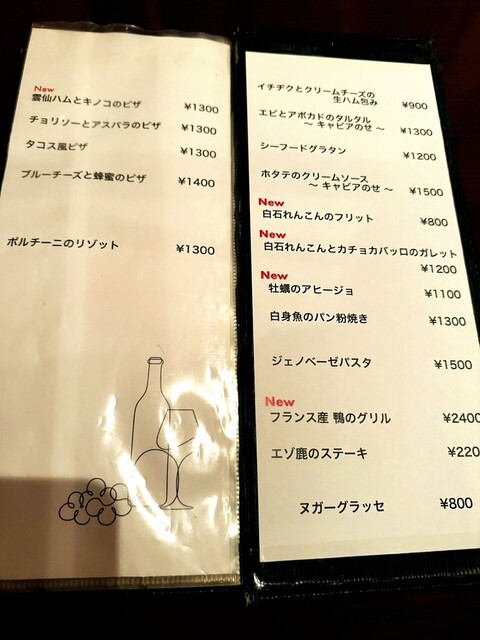 New
雲仙ハムとキノコのピザ ¥1300
チョリソーとアスパラのピザ ¥1300
タコス風ピザ ¥1300
ブルーチーズと蜂蜜のピザ ¥1400
ポルチーニのリゾット ¥1300
イチヂクとクリームチーズの
生ハム包み ¥900
エビとアボカドのタルタル
～ キャビアのせ ～ ¥1300
シーフードグラタン ¥1200
ホタテのクリームソース
～ キャビアのせ ～ ¥1500
New
白石れんこんのフリット ¥800
New
白石れんこんとカチョカバッロのガレット
¥1200
New
牡蠣のアヒージョ ¥1100
白身魚のパン粉焼き ¥1300
ジェノベーゼパスタ ¥1500
New
フランス産 鴨のグリル ¥2400
エゾ鹿のステーキ ¥220
ヌガーグラッセ ¥800